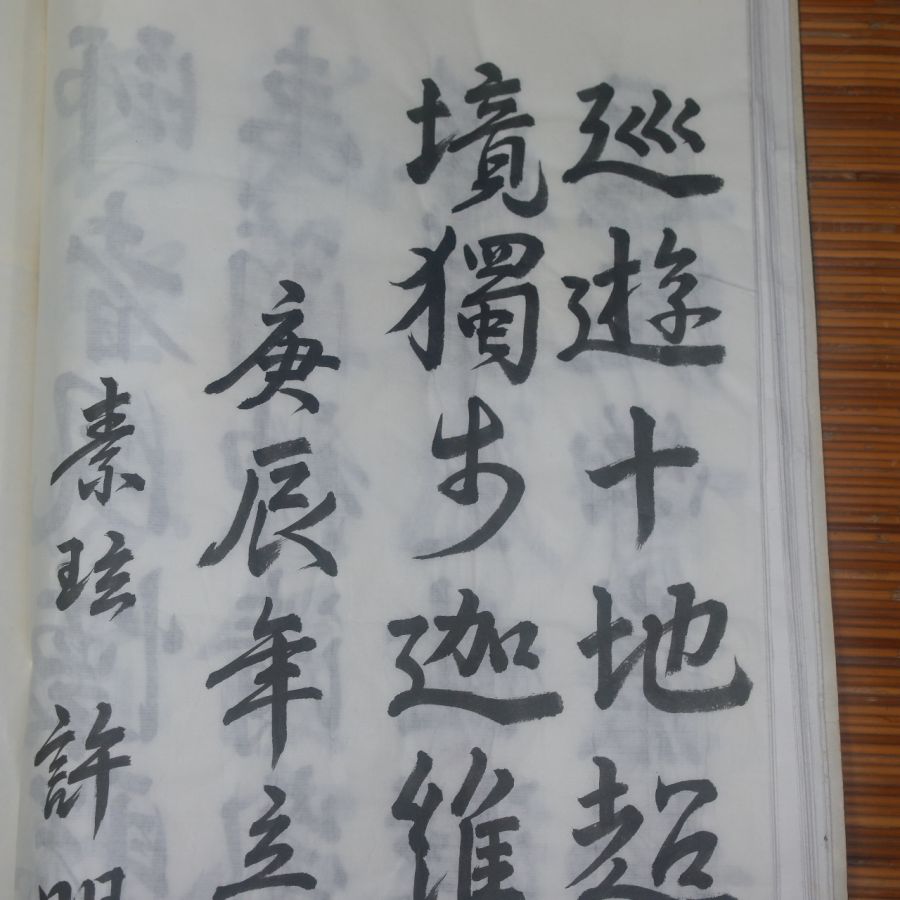 巡遊十地超
境獨步迦維
庚辰年立
素玹 許